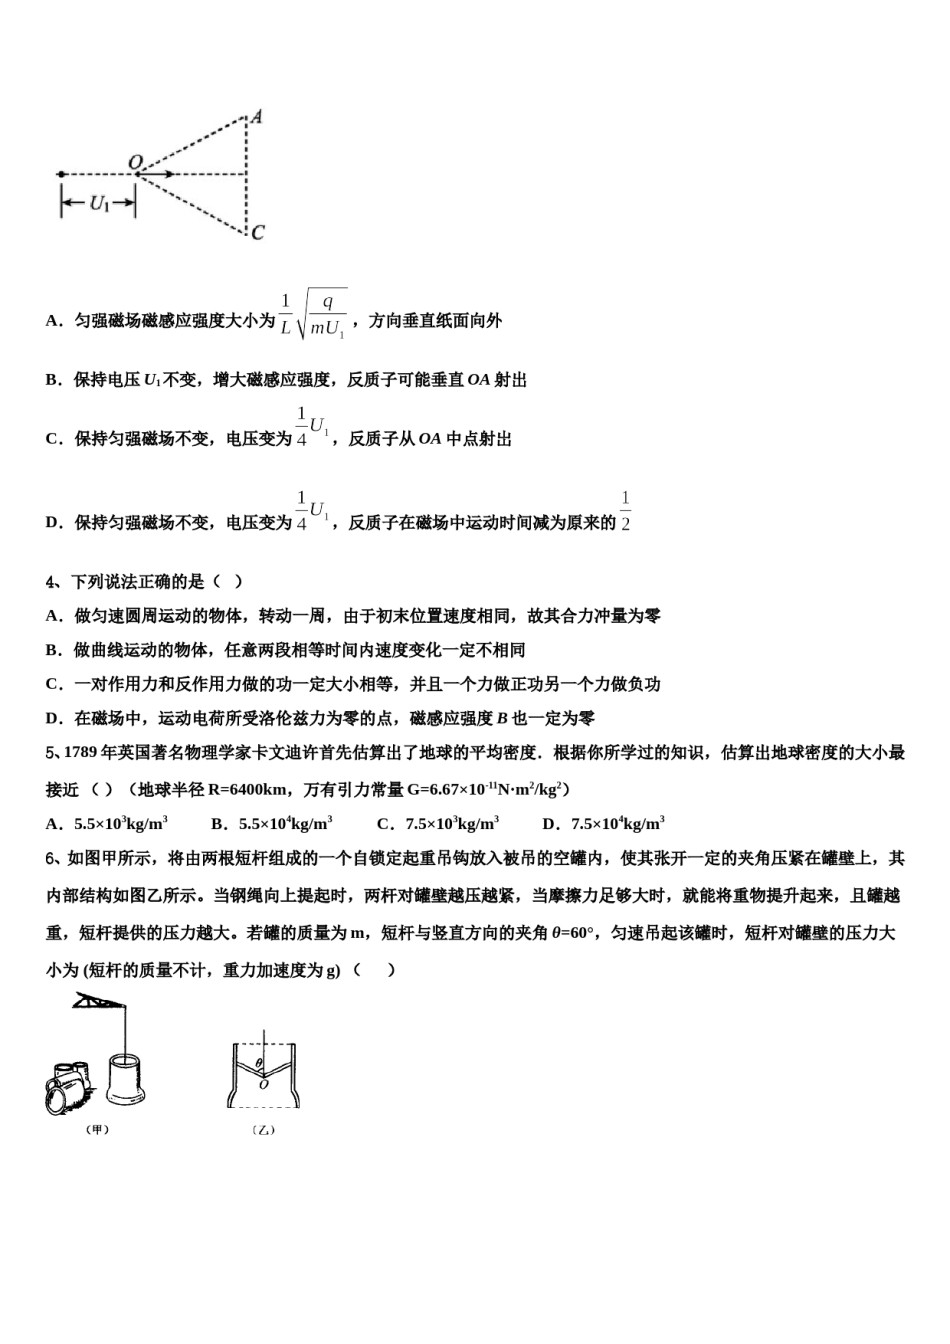 A
O
U₁
C
A．匀强磁场磁感应强度大小为 1/L √(q/(mU₁))，方向垂直纸面向外
B．保持电压 U₁不变，增大磁感应强度，反质子可能垂直 OA 射出
C．保持匀强磁场不变，电压变为 1/4 U₁，反质子从 OA 中点射出
D．保持匀强磁场不变，电压变为 1/4 U₁，反质子在磁场中运动时间减为原来的 1/2
4、下列说法正确的是（ ）
A．做匀速圆周运动的物体，转动一周，由于初末位置速度相同，故其合力冲量为零
B．做曲线运动的物体，任意两段相等时间内速度变化一定不相同
C．一对作用力和反作用力做的功一定大小相等，并且一个力做正功另一个力做负功
D．在磁场中，运动电荷所受洛伦兹力为零的点，磁感应强度 B 也一定为零
5、1789 年英国著名物理学家卡文迪许首先估算出了地球的平均密度．根据你所学过的知识，估算出地球密度的大小最
接近 （ ）（地球半径 R=6400km，万有引力常量 G=6.67×10⁻¹¹N·m²/kg²）
A．5.5×10³kg/m³ B．5.5×10⁴kg/m³ C．7.5×10³kg/m³ D．7.5×10⁴kg/m³
6、如图甲所示，将由两根短杆组成的一个自锁定起重吊钩放入被吊的空罐内，使其张开一定的夹角压紧在罐壁上，其
内部结构如图乙所示。当钢绳向上提起时，两杆对罐壁越压越紧，当摩擦力足够大时，就能将重物提升起来，且罐越
重，短杆提供的压力越大。若罐的质量为 m，短杆与竖直方向的夹角 θ=60°，匀速吊起该罐时，短杆对罐壁的压力大
小为 (短杆的质量不计，重力加速度为 g) （ ）
θ
O
（甲）
（乙）